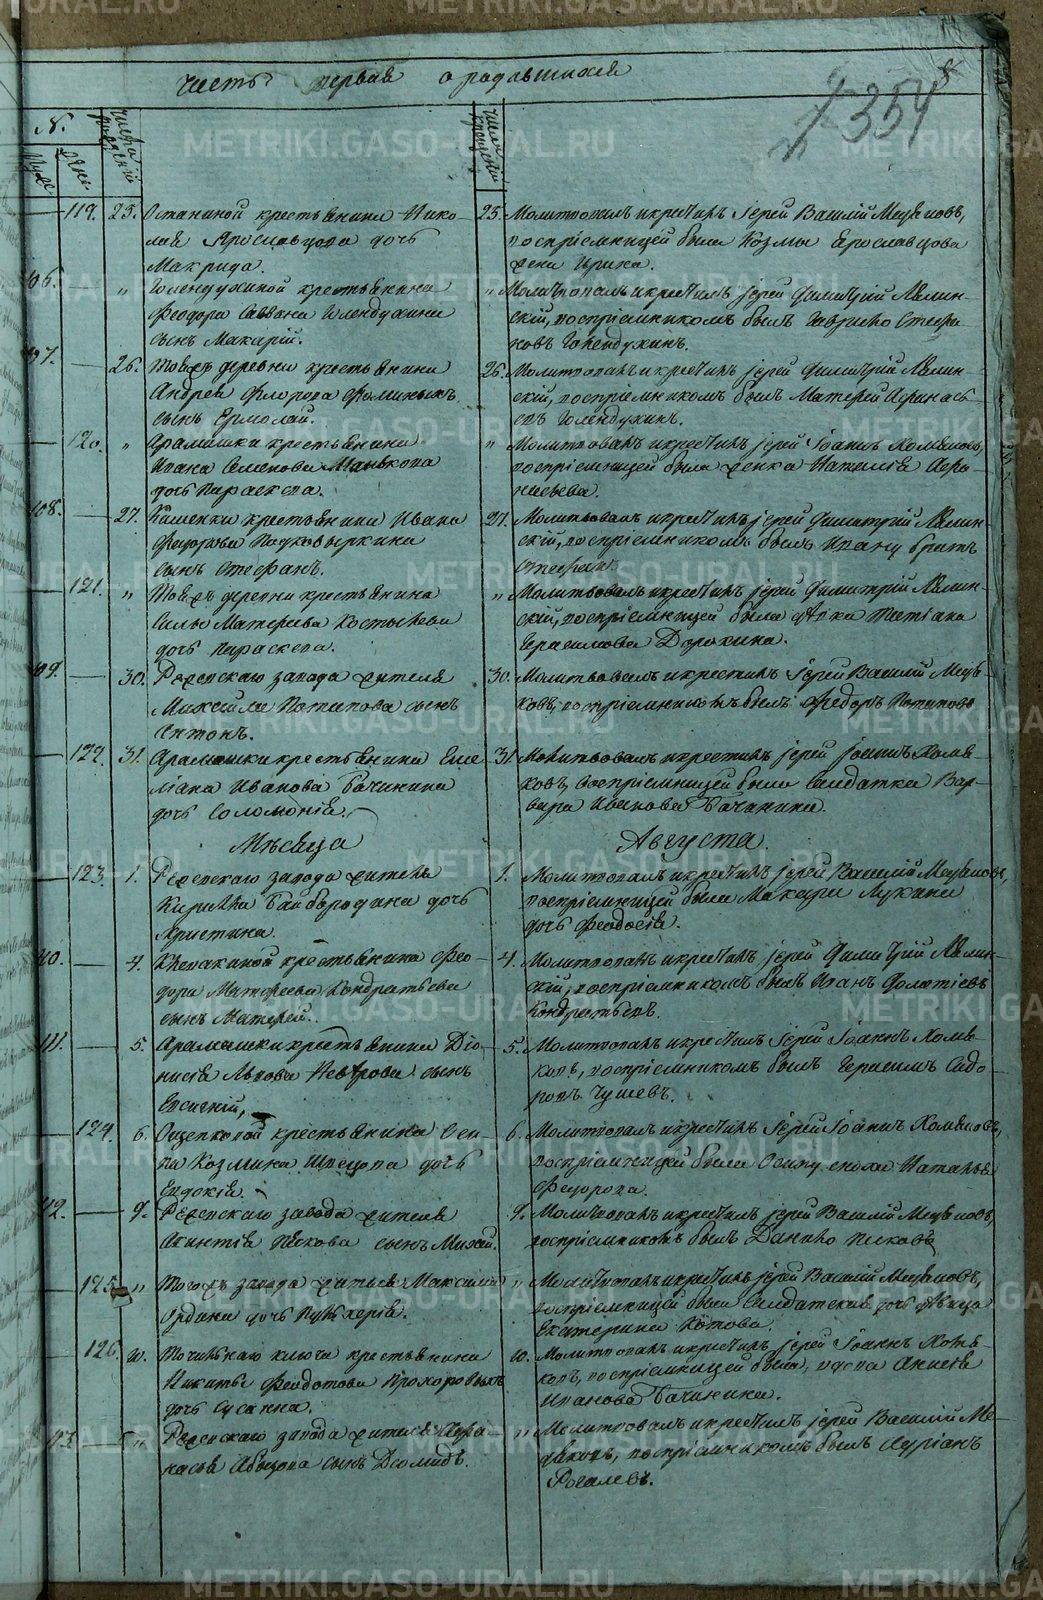 Часть первая о родившихся
354
N.
Муж. Жен.
Числа рождений
Числа крещений
119. 25. Останиной крестьянина Нико-
лая Ярославцова дочь
Макрида.
25. Молитвовалъ и крестилъ Іерей Василій Медвѣковъ,
воспріемницей была Козмы Ярославцова
жена Ирина.
106. " Голендухиной крестьянина
Феодора Саввина Голендухина
сынъ Макарій.
" Молитвовалъ и крестилъ іерей Димитрій Лялин-
скій, воспріемникомъ былъ Гаврило Стефа-
новъ Голендухинъ.
107. 26. Той же деревни крестьянина
Андрея Флорова Фоминыхъ
сынъ Ермолай.
26. Молитвовалъ и крестилъ іерей Димитрій Лялин-
скій, воспріемникомъ былъ Матвей Афинась-
евъ Голендухинъ.
120. " Арамашки крестьянина
Ивана Семенова Манькова
дочь Параскева.
" Молитвовалъ и крестилъ іерей Іоаннъ Хомяковъ,
воспріемницей была девка Наталія Афо-
насьева.
108. 27. Каменки крестьянина Ивана
Федорова Подковыркина
сынъ Стефанъ.
27. Молитвовалъ и крестилъ іерей Димитрій Лялин-
скій, воспріемникомъ былъ Ивану братъ
Стефанъ.
121. " Той же деревни крестьянина
Силы Матвеева Костылева
дочь Параскева.
" Молитвовалъ и крестилъ іерей Димитрій Лялин-
скій, воспріемницей была девка Татіана
Герасимова Дорохина.
109. 30. Режевскаго завода жителя
Михаила Потапова сынъ
Антонъ.
30. Молитвовалъ и крестилъ Іерей Василій Медвѣ-
ковъ, воспріемникомъ былъ Федоръ Потаповъ
122. 31. Арамашки крестьянина Еме
ліана Иванова Бачинина
дочь Соломонія.
31. Молитвовалъ и крестилъ іерей Іоаннъ Хомя-
ковъ, воспріемницей была Солдатка Вар-
вара Иванова Бачинина.
Мѣсяца Августа.
123. 1. Режевскаго завода жителя
Кирилла Байбородина дочь
Христина.
1. Молитвовалъ и крестилъ іерей Василій Медвѣковъ,
воспріемницей была Макара Лукина
дочь Феодосія.
110. 4. Клевакиной крестьянина Фео-
дора Матфеева Кондратьева
сынъ Матвей.
4. Молитвовалъ и крестилъ іерей Димитрій Лялин-
скій, воспріемникомъ былъ Иванъ Фолотіевъ
Кондратьевъ.
111. 5. Арамашки крестьянина Діо-
нисія Львова сынъ
Евсигній,
5. Молитвовалъ и крестилъ Іерей Іоаннъ Хомя-
ковъ, воспріемникомъ былъ Герасимъ Сидо-
ровъ Чушевъ.
124. 6. Ощепковой крестьянина Оси-
па Козмина Швецова дочь
Евдокія.
6. Молитвовалъ и крестилъ Іерей Іоаннъ Хомяковъ,
воспріемницей была Осипу сноха Наталья
Федорова.
112. 9. Режевскаго завода жителя
Акинтія Пескова сынъ Михай.
9. Молитвовалъ и крестилъ іерей Василій Медвѣковъ,
воспріемникомъ былъ Данило Песковъ
125. " Того же завода жителя Максима
Ордина дочь Пульхерія.
" Молитвовалъ и крестилъ іерей Василій Медвѣковъ,
воспріемницей была Солдатская дочь девица
Екатерина Котова.
126. 10. Точильнаго ключа крестьянина
Никиты Феодотова Прохоровыхъ
дочь Сусанна.
10. Молитвовалъ и крестилъ іерей Іоаннъ Хомя-
ковъ, воспріемницей была, вдова Анисія
Иванова Бачинина.
113. " Режевскаго завода жителя Афа-
насья Абызова сынъ Діомидъ.
" Молитвовалъ и крестилъ іерей Василій Ме-
двѣковъ, воспріемникомъ былъ Куріанъ
Рогалевъ.
METRIKI.GASO-URAL.RU